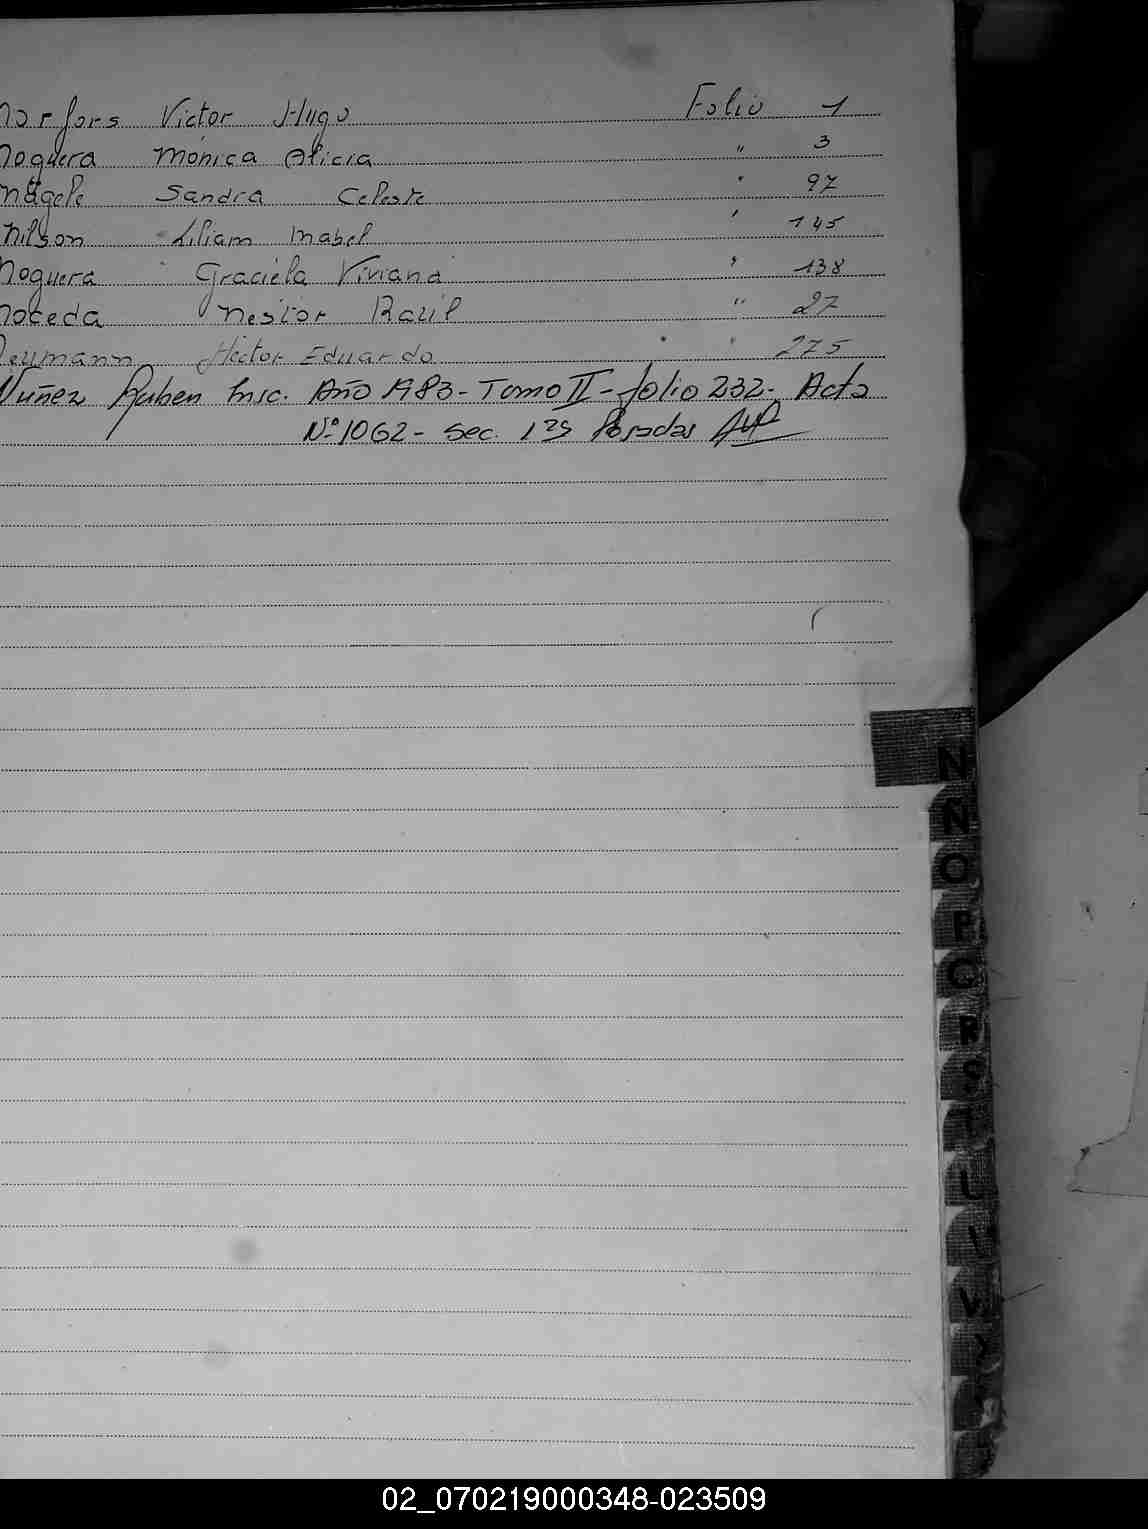 Norfors Victor Hugo Folio 1
Noguera Mónica Alicia " 3
Nägele Sandra Celeste " 97
Nilson Liliam Mabel " 145
Noguera Graciela Viviana " 138
Noceda Nestor Raúl " 27
Neumann Héctor Eduardo " 275
Nuñez Ruben Insc. Año 1983 - Tomo II - folio 232 - Acta
Nº 1062 - Sec. 1ra Posadas
N
Ñ
O
P
Q
R
S
T
U
V
W
02_070219000348-023509